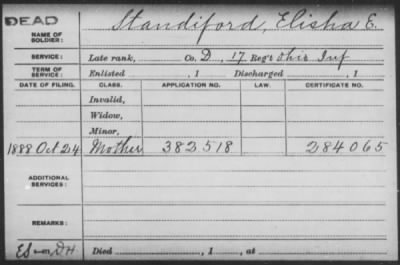 DEAD
NAME OF SOLDIER: Standiford, Elisha E.
SERVICE: Late rank, Co. D, 17 Reg't Ohio Inf
TERM OF SERVICE: Enlisted , 1 Discharged , 1
DATE OF FILING. CLASS. APPLICATION NO. LAW. CERTIFICATE NO.
Invalid,
Widow,
Minor,
1888 Oct 24 Mother 382518 284065
ADDITIONAL SERVICES:
REMARKS:
Died , 1 , at